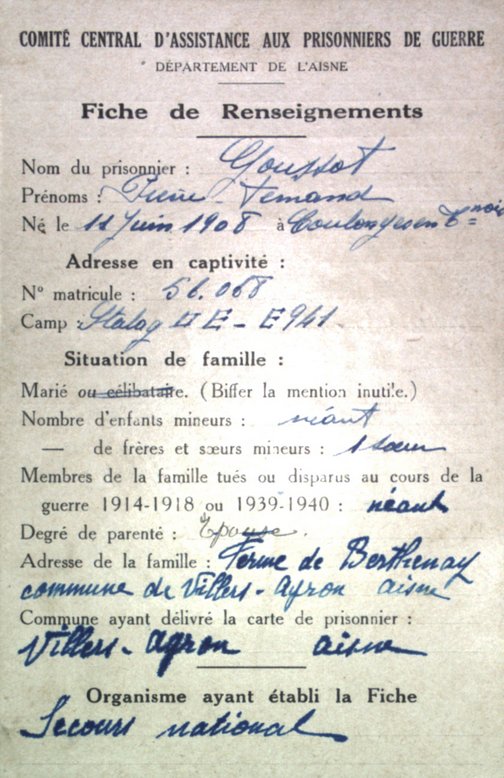 COMITÉ CENTRAL D'ASSISTANCE AUX PRISONNIERS DE GUERRE
DÉPARTEMENT DE L'AISNE
Fiche de Renseignements
Nom du prisonnier : Goussot
Prénoms : Pierre Fernand
Né le 11 Juin 1908 à Coulonges en Tnois
Adresse en captivité :
N° matricule : 56.068
Camp : Stalag II E - E 941
Situation de famille :
Marié ou célibataire. (Biffer la mention inutile.)
Nombre d'enfants mineurs : néant
— de frères et sœurs mineurs : 1 sœur
Membres de la famille tués ou disparus au cours de la
guerre 1914-1918 ou 1939-1940 : néant
Degré de parenté : Epouse.
Adresse de la famille : Ferme de Berthenay
commune de Villers - Agron aisne
Commune ayant délivré la carte de prisonnier :
Villers - Agron aisne
Organisme ayant établi la Fiche
Secours national